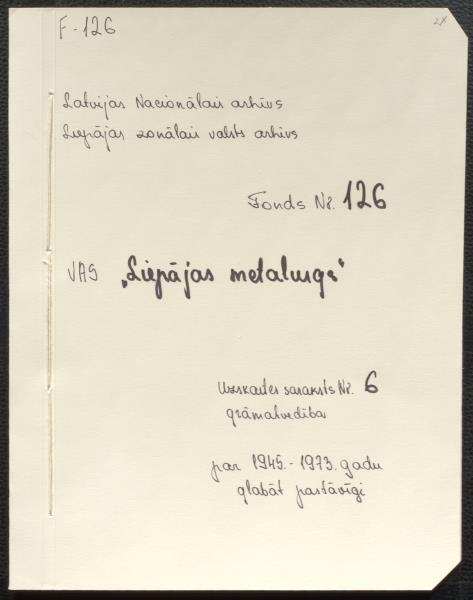 F-126
Latvijas Nacionālais arhīvs
Liepājas zonālais valsts arhīvs
Fonds Nr. 126
VAS „Liepājas metalurgs"
Uzskaites saraksts Nr. 6
grāmatvedība
par 1945.-1973. gadu
glabāt pastāvīgi